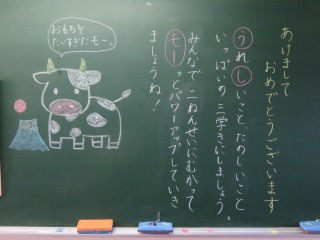 あけまして
おめでとうございます
うれしいこと、たのしいこと
いっぱいの 三学きにしましょう。
みんなで 二ねんせいにむかって
モーっとパワーアップしていき
ましょうね!
おもちを
たべすぎたモー。